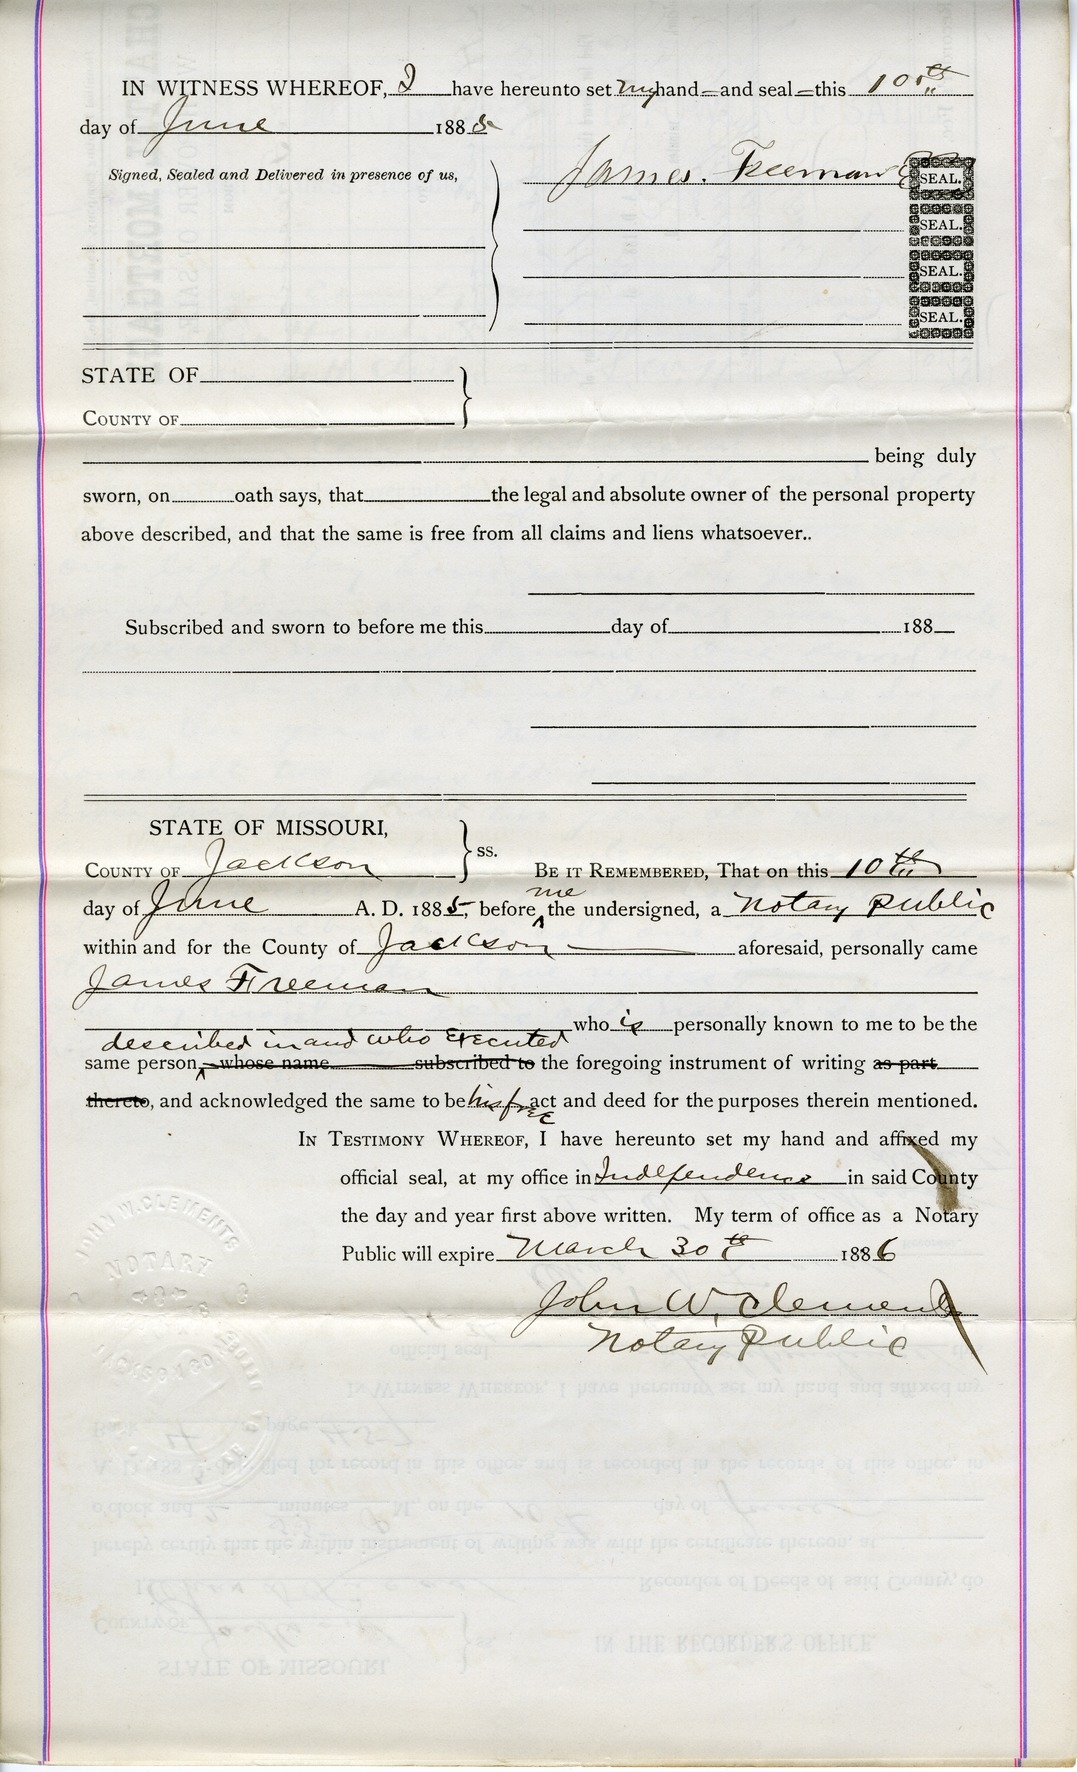 IN WITNESS WHEREOF, I have hereunto set my hand and seal this 10th
day of June 1885
Signed, Sealed and Delivered in presence of us,
James. Freeman SEAL.
SEAL.
SEAL.
SEAL.
STATE OF
COUNTY OF
being duly
sworn, on oath says, that the legal and absolute owner of the personal property
above described, and that the same is free from all claims and liens whatsoever..
Subscribed and sworn to before me this day of 188
STATE OF MISSOURI,
COUNTY OF Jackson ss. BE IT REMEMBERED, That on this 10th
me
day of June A. D. 1885, before ^ the undersigned, a Notary Public
within and for the County of Jackson aforesaid, personally came
James Freeman
who is personally known to me to be the
described in and who Executed
same person, ^ whose name subscribed to the foregoing instrument of writing as part
thereto, and acknowledged the same to be his free act and deed for the purposes therein mentioned.
IN TESTIMONY WHEREOF, I have hereunto set my hand and affixed my
official seal, at my office in Independence in said County
the day and year first above written. My term of office as a Notary
Public will expire March 30th 1886
John W. Clements
Notary Public
JOHN W. CLEMENTS
NOTARY
JACKSON CO.